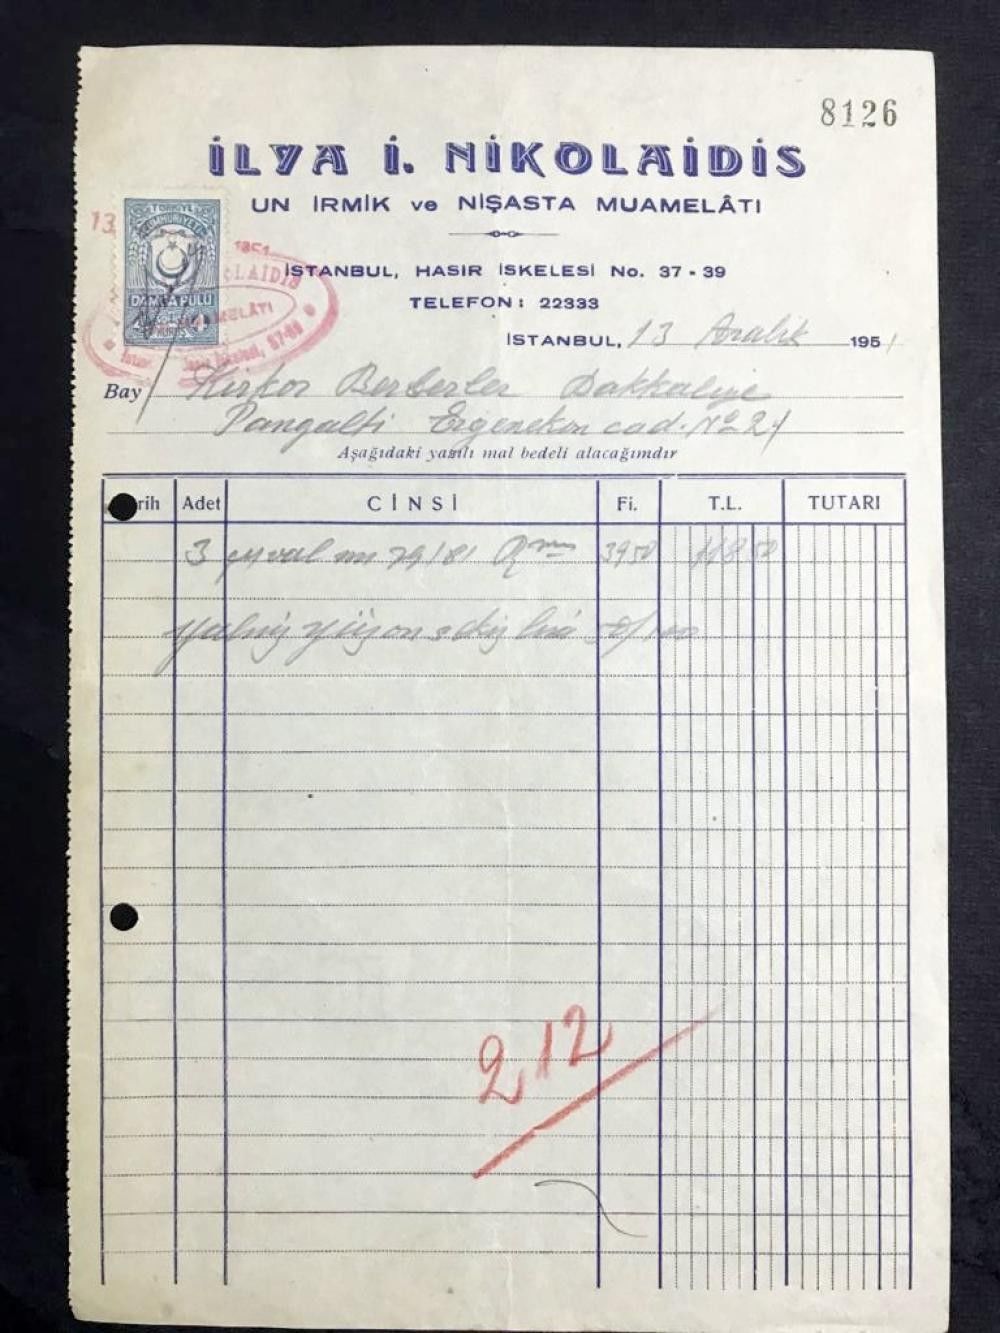 8126
İLYA İ. NİKOLAİDİS
UN İRMİK ve NİŞASTA MUAMELÂTI
İSTANBUL, HASIR İSKELESİ No. 37 - 39
TELEFON: 22333
13
1951
TÜRKİYE
CUMHURİYETİ
DAMGA PULU
İSTANBUL, 13 Aralık 1951
Bay Kirkor Berberler Bakkaliye
Pangaltı Ergenekon cad. No 221
Aşağıdaki yazılı mal bedeli alacağımdır
rih Adet CİNSİ Fi. T.L. TUTARI
3 çuval un 79/81 3950 118 50
Yalnız yüzonsekiz lira 50/100
212